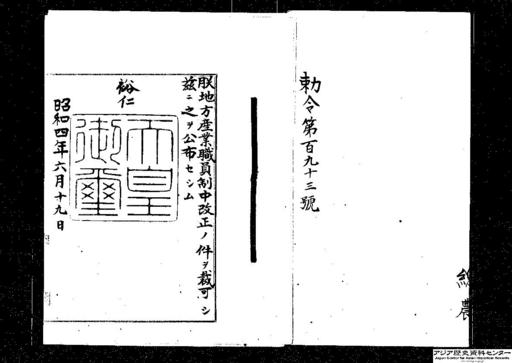 勅令第百九十三號
総農
朕地方産業職員制中改正ノ件ヲ裁可シ
茲ニ之ヲ公布セシム
裕仁
天皇御璽
昭和四年六月十九日
アジア歴史資料センター
Japan Center for Asian Historical Records